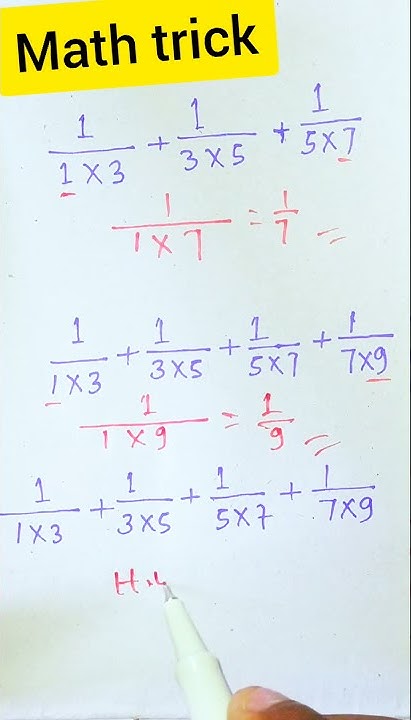 Math trick
1/(1×3) + 1/(3×5) + 1/(5×7)
1/(1×7) = 1/7
1/(1×3) + 1/(3×5) + 1/(5×7) + 1/(7×9)
1/(1×9) = 1/9
1/(1×3) + 1/(3×5) + 1/(5×7) + 1/(7×9)